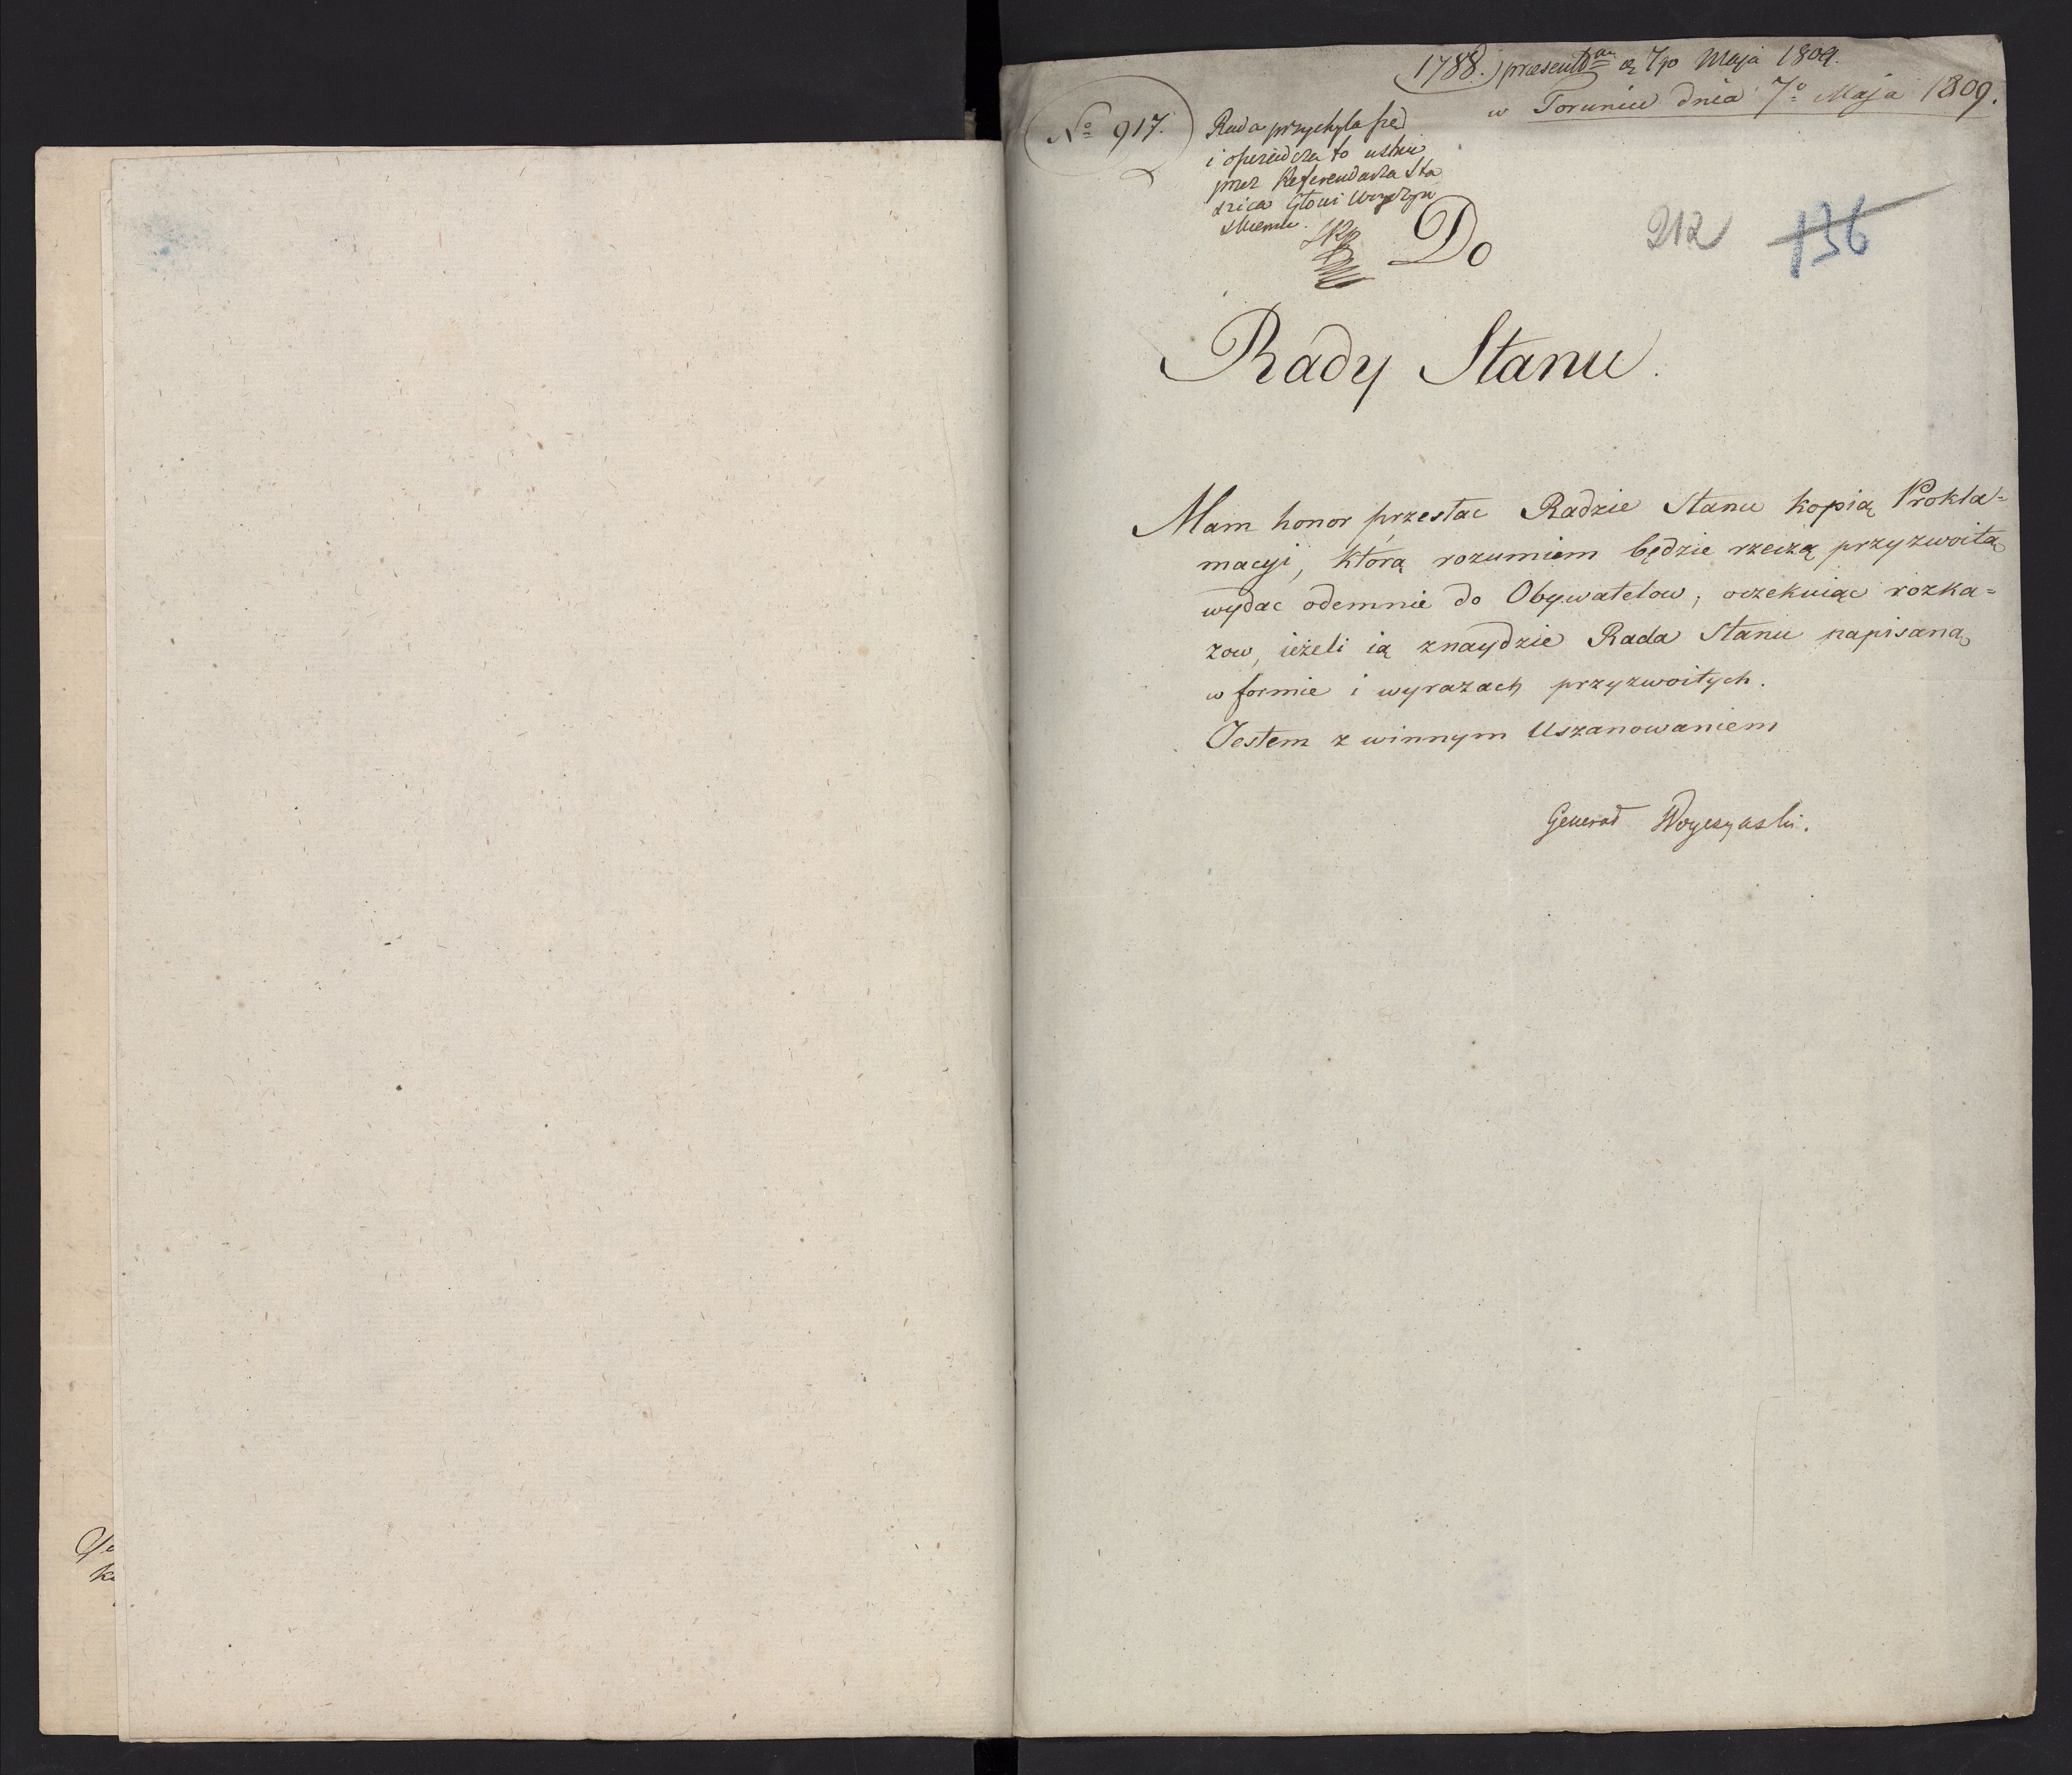 1788.) praesent d 7go Maja 1809.
w Toruniu dnia 7o Maja 1809.
No 917.
Rada przychyla się
i oświadcza to ustnie
przez Referendarza Sta
szica
skiemu.
212 136
Do
Rady Stanu.
Mam honor przesłac Radzie Stanu kopią Prokla=
macyi, którą rozumiem będzie rzeczą przyzwoitą
wydac odemnie do Obywatelow, oczekuiąc rozka=
zow, ieżeli ią znaydzie Rada Stanu napisaną
w formie i wyrazach przyzwoitych.
Jestem z winnym Uszanowaniem
Generał Woyczynski.